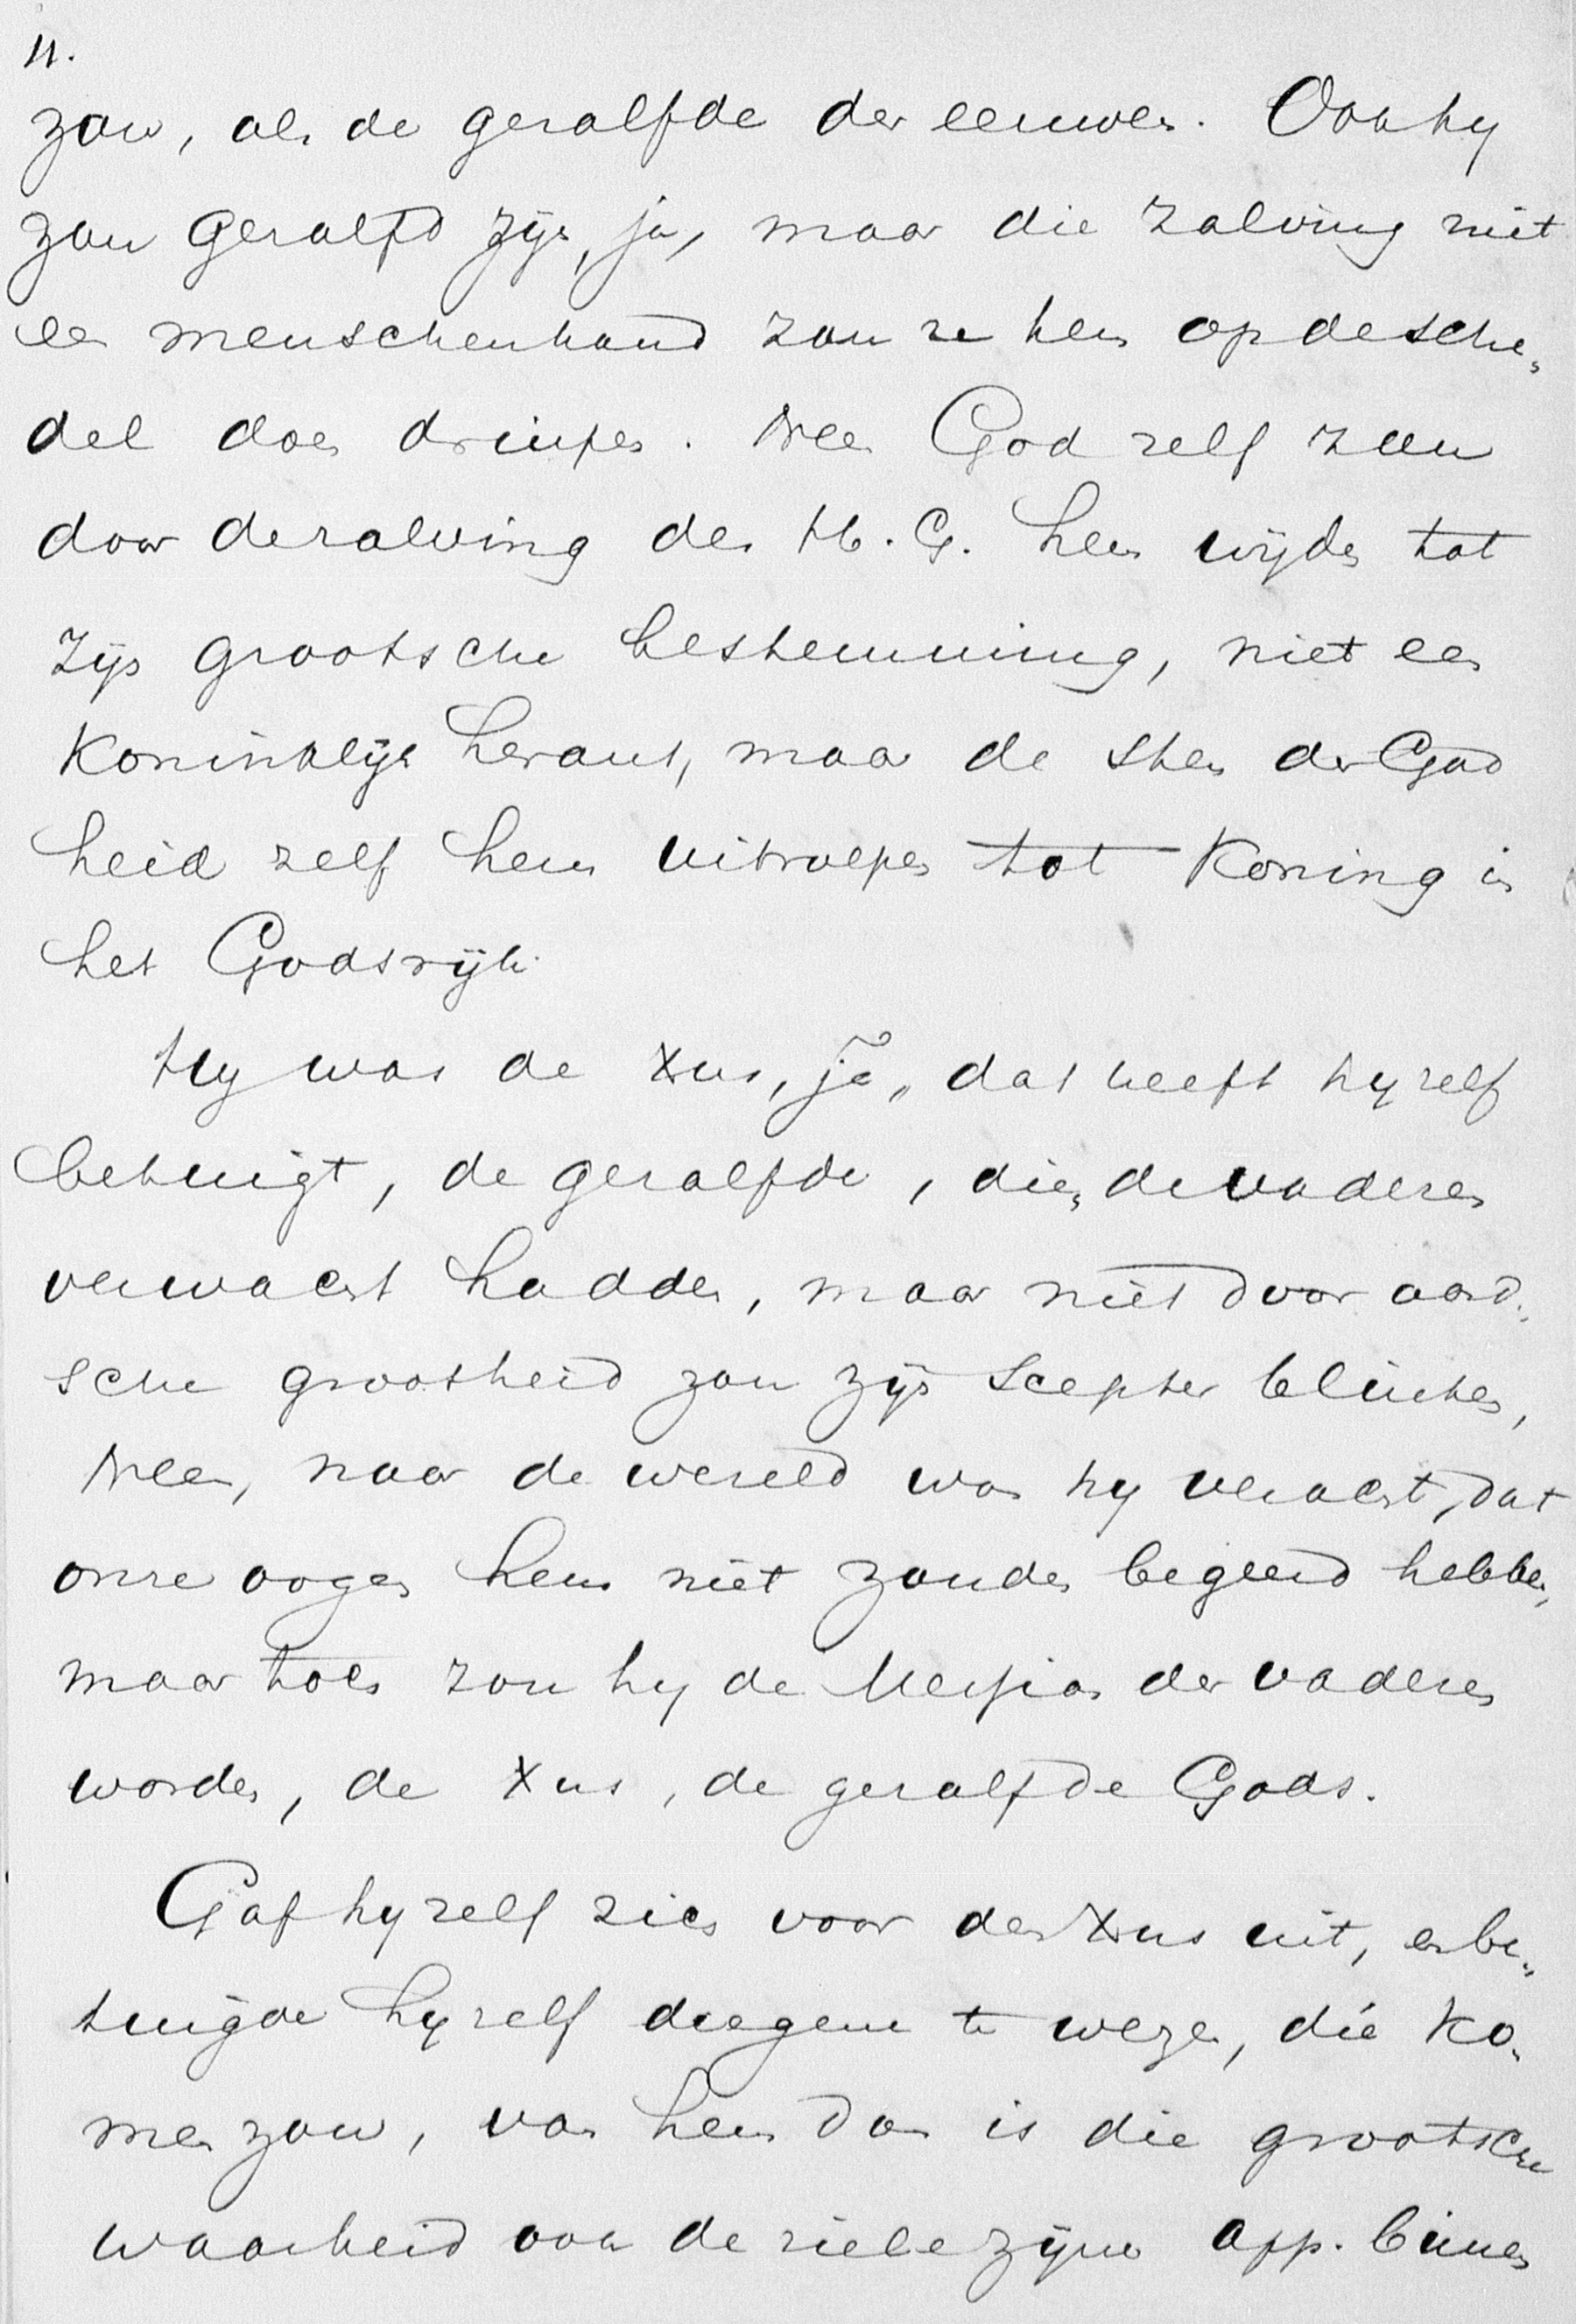 11.
zou, als de gezalfde der eeuwen. Ook hy
zou gezalfd zijn, ja, maar die zalving niet
een menschenhand zou ze hem op de sche„
del doen druipen. Neen God zelf zou
door de zalving des H. G. hem wijden tot
zijn grootsche bestemming, niet een
koninklijk heraut, maar de stem der God
heid zelf hem uitroepen tot Koning in
het Godsrijk.
Hy was de Xus, ja, dat heeft hy zelf
betuigt, de gezalfde, dien de vaderen
verwacht hadden, maar niet door aard„
sche grootheid zou zijn scepter blinken,
Neen, naar de wereld was hy veracht, dat
onze oogen hem niet zouden begeerd hebben,
maar toen zou hy de Messias der vaderen
worden, de Xus, de gezalfde Gods.
Gaf hy zelf zich voor den Xus uit, en be„
tuigde hy zelf diegene te wezen, die ko„
men zou, van hem dan is die grootsche
waarheid ook de ziele zijner app. binnen